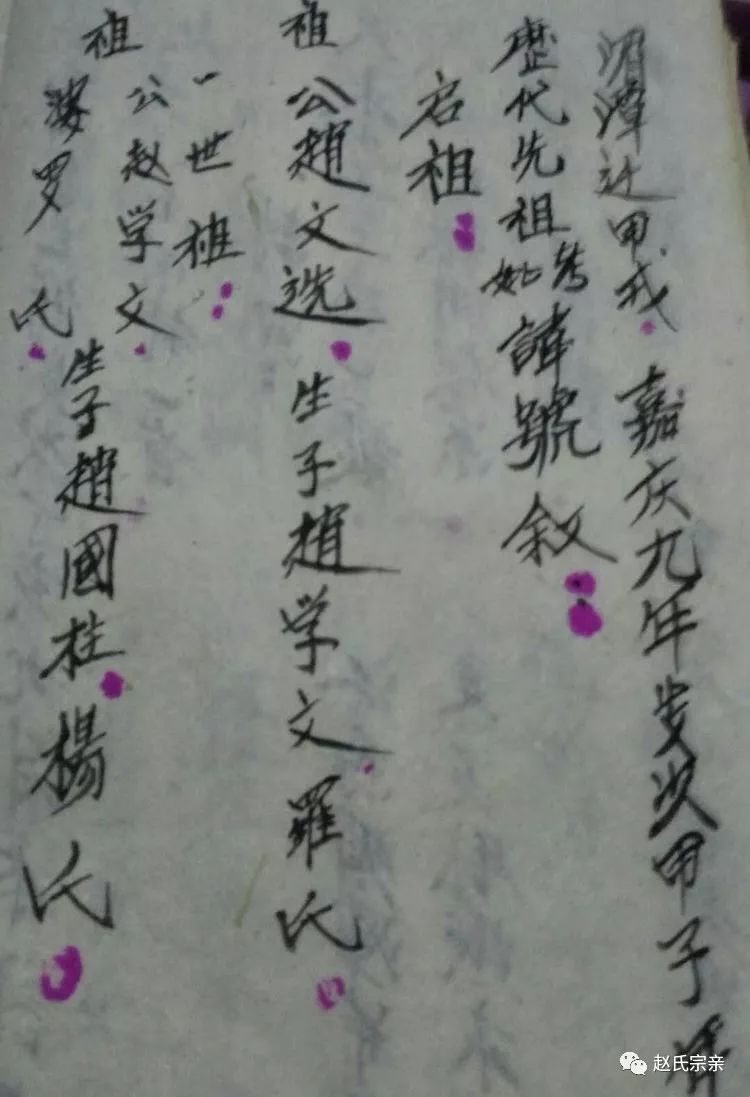 湄潭过甲戎 嘉庆九年岁次甲子
歷代先祖考妣諱號叙
启祖
祖公趙文选 生子趙学文羅氏
一世祖
祖公赵学文
婆罗氏
生子趙國柱楊氏
赵氏宗亲